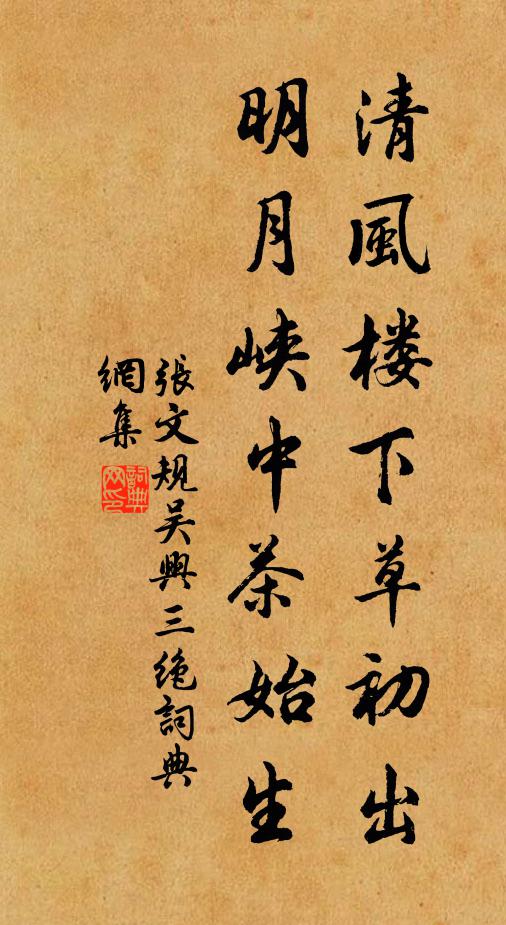 清風楼下草初出
明月峽中茶始生
張文規吴興三绝詞典
網集
詞典
网印